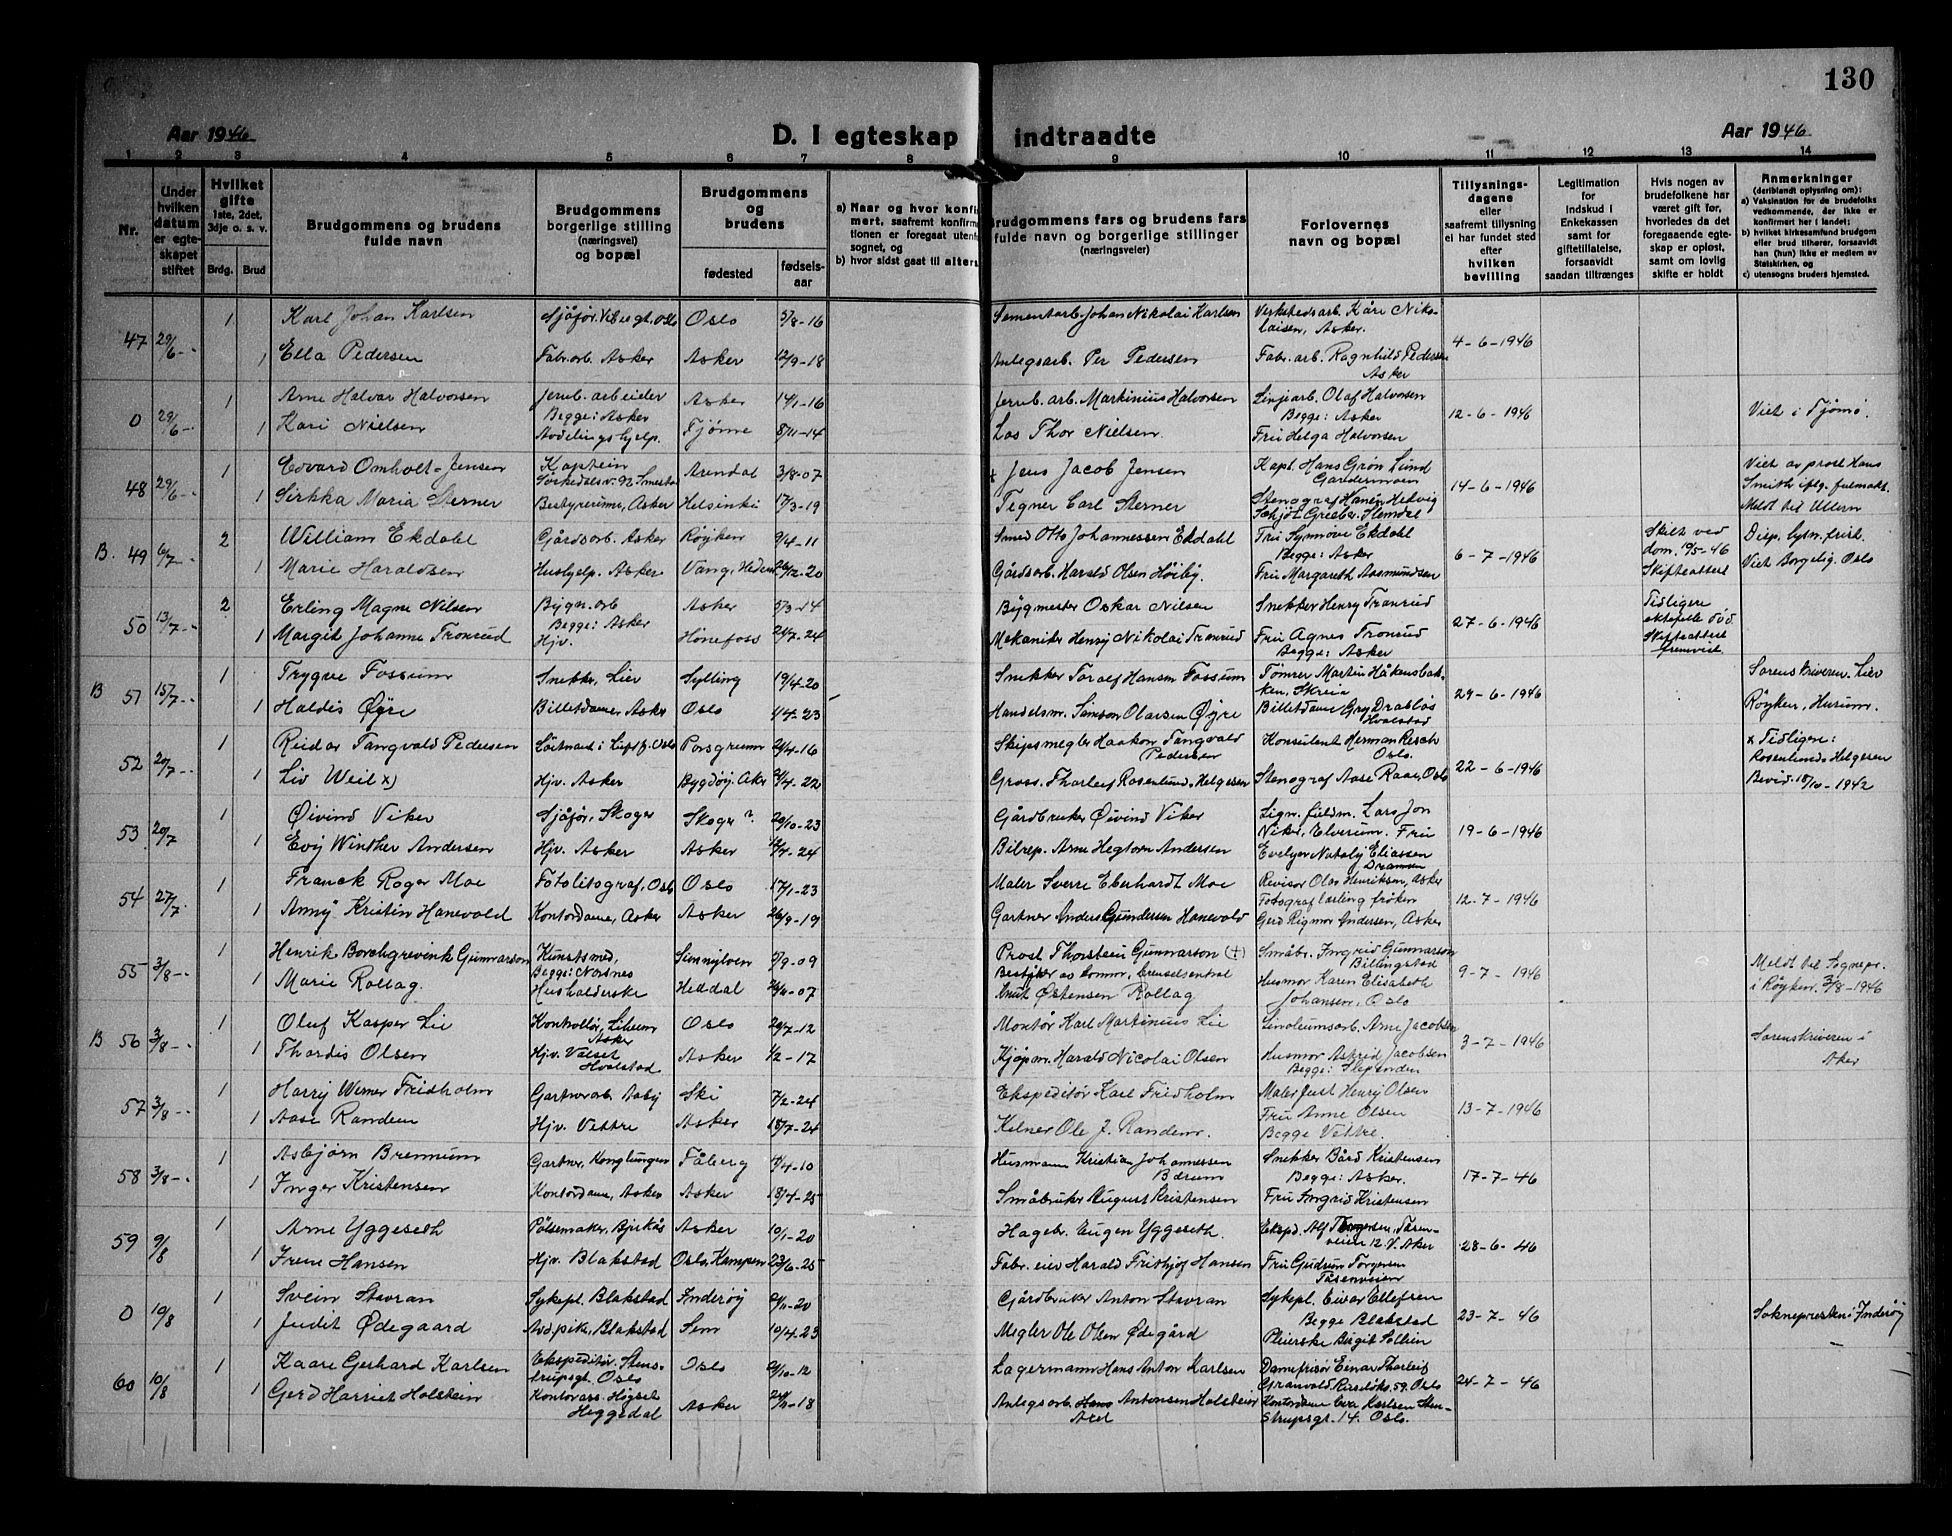 130
Aar 1946
D. I egteskap indtraadte
Aar 1946
1 2 3 4 5 6 7 8 9 10 11 12 13 14
Nr.
Under hvilken datum er egteskapet stiftet
Hvilket gifte 1ste, 2det, 3dje o. s. v.
Brdg. Brud
Brudgommens og brudens fulde navn
Brudgommens borgerlige stilling (næringsvei) og bopæl
Brudgommens og brudens
fødested
fødselsaar
a) Naar og hvor konfi
mert, saafremt konfirma
tionen er foregaat utenfo
sognet, og
b) hvor sidst gaat til alters
Brudgommens fars og brudens fars fulde navn og borgerlige stillinger (næringsveier)
Forlovernes navn og bopæl
Tillysningsdagene eller saafremt tillysning ei har fundet sted efter hvilken bevilling
Legitimation for Indskud i Enkekassen samt for giftetillatelse, forsaavidt saadan tiltrænges
Hvis nogen av brudefolkene har været gift før, hvorledes da det foregaaende egteskap er opløst, samt om lovlig skifte er holdt
Anmerkninger (deriblandt oplysning om): a) Vaksination for de brudefolks vedkommende, der ikke er konfirmert her i landet; b) hvilket kirkesamfund brudgom eller brud tilhører, forsaavidt han (hun) ikke er medlem av Statskirken, og c) utensogns bruders hjemsted.
47 29/6 1 Karl Johan Karlsen Sjåfør, Vibesgt. Oslo Oslo 5/8-16 Sementarb. Johan Nikolai Karlsen Verkstedsarb. Kåre Nikolaisen, Asker. 4-6-1946
1 Ella Pedersen Fabr.arb. Asker Asker 12/9-18 Anlegsarb. Per Pedersen Fabr. arb. Ragnhild Pedersen Asker
0 29/6 1 Arne Halvar Halvorsen Jernb. arbeider Begge: Asker Asker 14/1-16 Jernb. arb. Markinius Halvorsen Linjearb. Olaf Halvorsen Begge: Asker 12-6-1946 Viet i Tjømø.
1 Kari Nielsen Avdelingshjelp. Tjøme 8/11-14 Los Thor Nielsen. Fru Helga Halvorsen
48 29/6 1 Edvard Omholt-Jensen Kaptein Sørkedalsv. Smestad Arendal 3/8-07 + Jens Jacob Jensen Kapt. Hans Grøn Lund Gardermoen 14-6-1946 Viet av prost Hans Smith iflg. fulmakt. Meldt til Ullern
1 Sirkka Maria Sterner Bestyrerinne, Asker Helsinki 17/3-19 Tegner Carl Sterner Stenograf Hedvig Schjöt Greeber. Slemdal
B. 49 6/7 2 William Ekdahl Gårdsarb. Asker Røyken 9/4-11 Smed Otto Johannessen Ekdahl Fru Synnøve Ekdahl Begge: Asker 6-7-1946 Skilt ved dom. 10/5-46 Skifteattest Disp. lysn. frist. Viet Borgelig. Oslo
1 Marie Haraldsen Hushjelp. Asker Vang, Hedm. 26/12-20 Gårdsarb. Harald Olsen Høiby. Fru Margareth Aasmundsen
50 13/7 2 Erling Magne Nilsen Bygn.arb Begge: Asker Asker 5/3-14 Bygmester Oskar Nilsen Snekker Henry Tronrud 27-6-1946 Tidligere ektefelle død Skifteattest
1 Margit Johanne Tronrud Hjv. Hønefoss 21/7-24 Mekaniker Henry Nikolai Tronrud Fru Agnes Tronrud Begge: Asker
B 51 15/7 1 Trygve Fossum Snekker, Lier Sylling 19/4-20 Snekker Toralf Hansen Fossum Tømrer Martin Håkensbakken, Skreia 29-6-1946 Sorenskriveren. Lier Røyken, Hurum.
1 Haldis Øyre Billetdame, Asker Oslo 1/4-23 Handelsm. Simson Olarsen Øyre Billetdame Gry Drabløs Hvalstad
52 20/7 1 Reidar Tangvald Pedersen Løitnant i Luftf. Oslo Porsgrunn 21/4-16 Skipsmegler Haakon Tangvald Pedersen Konsulent Herman Resch Oslo. 22-6-1946 x Tidligere: Rosenlund-Helgesen Bevid. 15/10-1942
1 Liv Weil x) Hjv. Asker Bygdøy, Aker 4/4-22 Gross. Tharleif Rosenlund-Helgesen Stenograf Aase Raae, Oslo
53 20/7 1 Øivind Viker Sjåfør, Skoger Skoger 20/10-23 Gårdbruker Øivind Viker Lign. fuldm. Lars Jon Niker, Elverum. Fru 19-6-1946
1 Evy Winther Andersen Hjv. Asker Asker 24 Bilrep. Arne Hegtorn Andersen Evelyn Nataly Eliassen Drammen
54 27/7 1 Franck Roger Moe Fotolitograf. Oslo Oslo 17/1-23 Maler Sverre Eberhardt Moe Revisor Olav Henriksen, Asker 12-7-1946
1 Anny Kristin Hanevold Kontordame, Asker Asker 26/9-19 Gartner Anders Gundersen Hanevold Fotograf lærling frøken Gerd Rigmor Andersen, Asker
55 3/8 1 Henrik Borchgrevink Gunnarson Kunstsmed, Begge: Nesnes Sunnylven 5/9-09 Prost Thorstein Gunnarson (+) Småbr. Ingrid Gunnarson Billingstad 9-7-1946 Meldt til Sognepr. i Røyken. 3/8-1946
1 Marie Rollag. Husholderske Heddal 26/11-07 Knut Østensen Rollag Husmor Karen Elisabeth Johansen, Oslo
B 56 3/8 1 Oluf Kasper Lie Kontrollør, Asker Oslo 20/7-12 Montør Karl Martinius Lie Linoleumsarb. Arne Jacobsen 3-7-1946 Sorenskriveren i Aker
1 Thordis Olsen Hjv. Valset Hvalstad Asker 1/2-17 Kjøpm. Harald Nicolai Olsen Husmor Astrid Jacobsen Begge: Slependen
57 3/8 1 Harry Werner Fridholm Gartnerarb. Åaby Ski 7/2-24 Ekspeditør Karl Fridholm Maler fast Henry Olsen 13-7-1946
1 Aase Randem Hjv. Vettre Asker 18/7-24 Kelner Ole J. Randem. Fru Anne Olsen Begge Vettre.
58 3/8 1 Asbjørn Brennum Gartner, Konglungen Fåberg 4/4-10 Husmann Kristian Johannessen Bærum Snekker Bård Kristensen Begge: Asker. 17-7-46
1 Inger Kristensen Kontordame, Asker Asker 18/4-25 Småbruker August Kristensen Fru Ingrid Kristensen
59 9/8 1 Arne Yggeseth Pølsemaker, Bjerkås Asker 10/1-20 Hagebr. Eugen Yggeseth. Eksped. Alf Torgersen, Tåsenveien 12 V. Aker 28-6-46
1 Irene Hansen Hjv. Blakstad Oslo, Kampen 23/6-25 Fabr. eier Harald Frithjof Hansen Fru Gudrun Torgersen Tåsenveien
0 10/8 1 Svein Stavran Sykepl. Blakstad Inderøy 4/11-20 Gårdbruker Anton Stavran Sykepl. Eivar Ellefsen Begge Blakstad 23-7-46 Soknepresten i Inderøy
1 Judit Ødegaard Avd.pike, Blakstad Sem 10/4-23 Megler Ole Olsen Ødegård Pleierske Birgit Solheim
60 10/8 1 Kaare Gerhard Karlsen Ekspeditør. Stenstrupsgt. Oslo Oslo 21/10-12 Lagermann Hans Anton Karlsen Damefrisør Einar Tharleif Granvold 59. Oslo 24-7-46
1 Gerd Harriet Holstein Kontorass. Høgset Heggedal Asker 24/11-18 Anlegsarb. Hans Antonsen Holstein Axel Kontordame Eva Karlsen Stenstrupsgt. 14. Oslo.